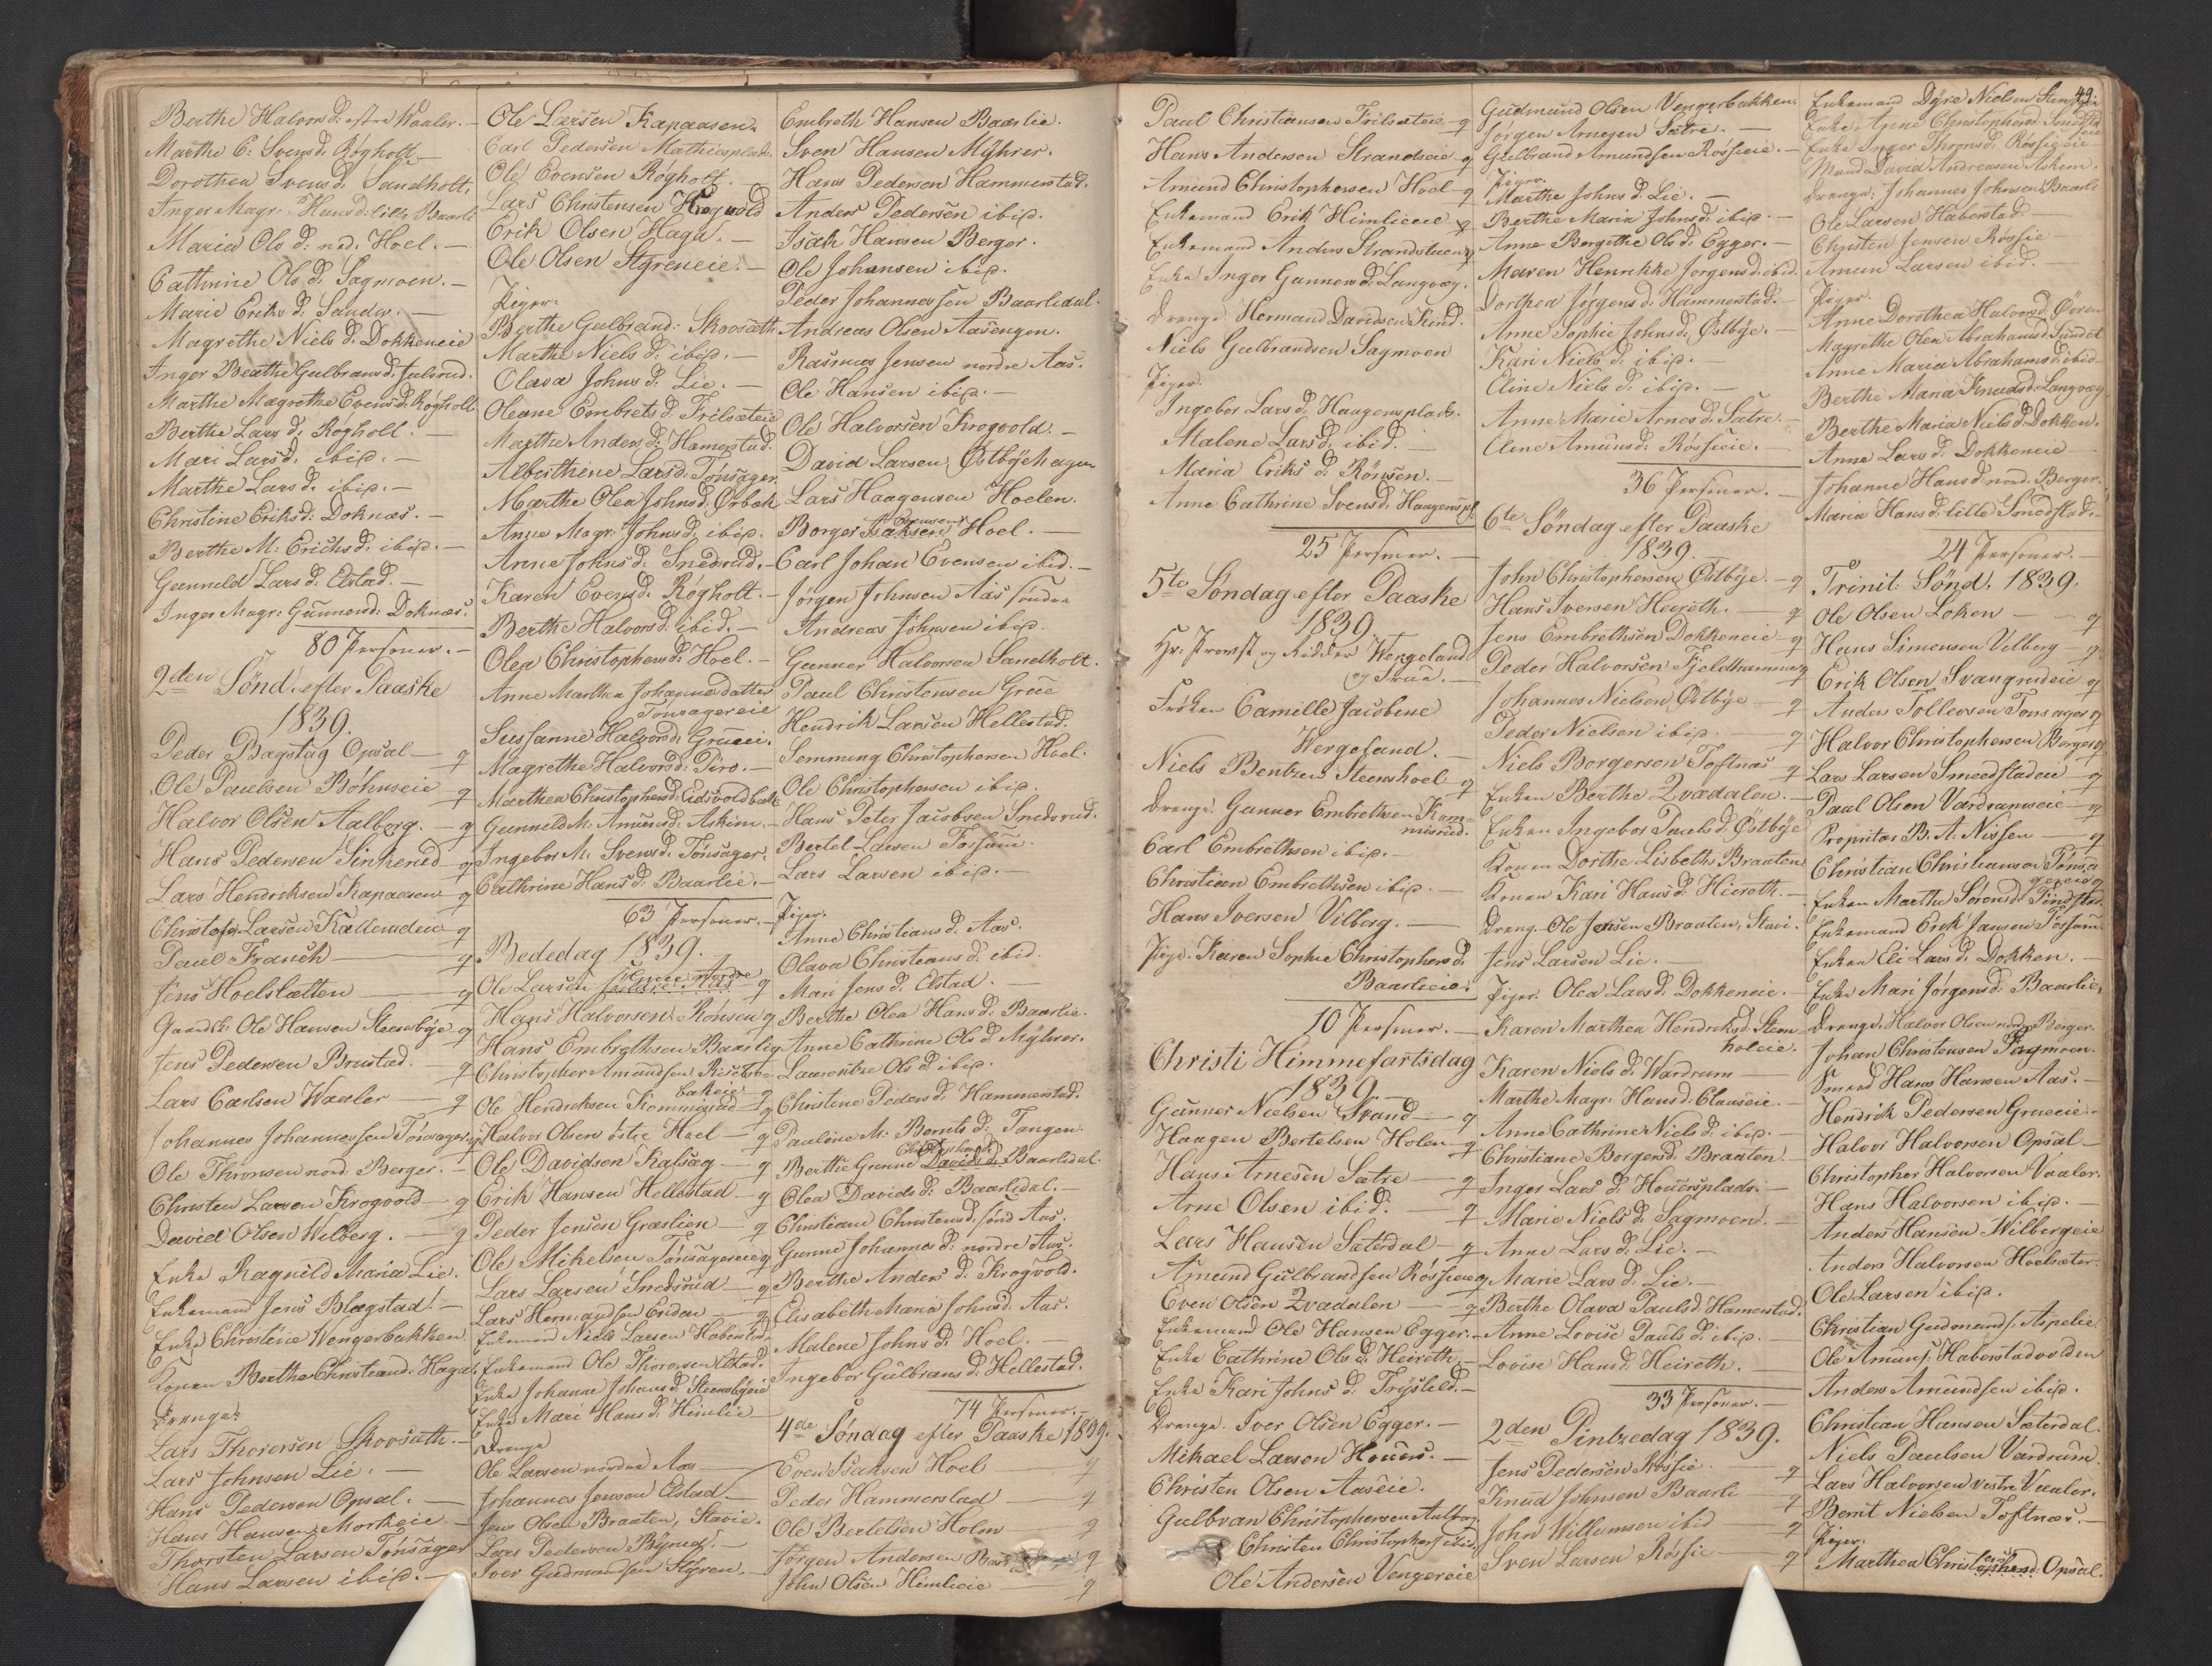 Berthe Halvors d. østre Waaler. —
Marthe E: Svensd. Røgholt —
Dorothea Svensd. Sandholt.
Inger Magr: Hansd: lille Baarli
Maria Ols d: nd. Hoel. —
Cathrine Ols d. Sagmoen. —
Marie Eriks d: Sander. —
Magrethe Niels d. Dokkeneie
Inger Berthe Gulbransd. Julsrud.
Marthe Magrethe Evensd. Røgholt
Berthe Lars d. Rogholt. —
Mari Larsd. ibid. —
Marthe Lars d. ibid. —
Christine Eriksd: Doknæs. —
Berthe M: Erichsd. ibid. —
Gunneld Lars d. Elstad. —
Inger Magr: Gunnersd: Doknæs.
80 Personer. —
2den Sønd. efter Paaske
1839.
Peder Bagstag Opsal — g
Ole Paulsen Bøhnseie g
Halvor Olsen Aalborg. — g
Hans Pedersen Sinkerud — g
Lars Hendriksen Kapaasen — g
Christofer Larsen Kællerudeie g
Paul Fransch — g
Jens Hoelslætten — g
Gaardbr: Ole Hansen Steensbye g
Jens Pedersen Brustad. — g
Lars Carlsen Waaler — g
Johannes Johannessen Tønsager g
Ole Thronsen nord. Berger. —
Christen Larsen Krogvold — g
David Olsen Wilberg. — g
Enke Ragnild Maria Lie.
Enkemand Jens Blegstad. —
Enke Christine Wengerbakken
Konen Berthe Christiansd. Haga.
Drenge:
Lars Thorersen Skovsæth. —
Lars Johnsen Lie. —
Hans Pedersen Opsal. —
Hans Hansen Morkeie —
Thorsten Larsen Tønsager
Hans Larsen ibid. —
Ole Larsen Kapaasen.
Carl Pedersen Mathiesplads.
Ole Evensen Røgholt. —
Lars Christensen Krogvold
Erik Olsen Haga. —
Ole Olsen Styreneie. —
Piger.
Berthe Gulbrand: Skovsæth
Marthe Niels d. ibid. —
Olava Johns d. Lie. —
Oleane Embrets d. Frilsæteie
Marthe Anders d. Hamerstad.
Alberthine Larsd. Tønsager
Marthe Olea Johnsd. Ørbæk
Anne Magr. Johnsd. ibid.
Anne Johns d. Snedsrud. —
Karen Evensd. Røgholt. —
Berthe Halvorsd. ibid. —
Olea Christophersd. Hoel. —
Anne Marthea Johannesdatter
Tønsagereie
Sussanne Halvorsd. Grueei.
Magrethe Halvorsd. Piro. —
Marthea Christophersd. Eidsvoldbak
Gunneld M. Amunsd. Askim. —
Ingebor M. Svensd. Tønsager.
Cathrine Hans d. Baarlie. —
63 Personer. —
Bededag 1839.
Ole Larsen Gruee Nordre Aas g
Hans Halvorsen Rønsen g
Hans Embrethsen Baarli g
Christopher Amundsen
bakeie g
Ole Hendriksen Kommisrud — g
Halvor Olsen østre Hoel — g
Ole Davidsen Kalsag — g
Erik Hansen Hellestad — g
Peder Jensen Græslien — g
Ole Mikelsen Tønsagereie g
Lars Larsen Snedsrud — g
Lars Hermandsen Enden — g
Enkemand Niels Larsen Haberstad.
Enkemand Ole Thorersen Elstad.
Enke Johanne Johansd. Steensbyeie
Enke Mari Hans d. Heinlie
Drenge
Ole Larsen nordre Aas —
Johannes Jensen Elstad —
Jens Olsen Braaten, Stavie.
Lars Pedersen Bÿrud. —
Iver Gudmundsen Styren. —
Embreth Hansen Baarlie.
Sven Hansen Myhrer.
Hans Pedersen Hammerstad.
Anders Pedersen ibid.
Isak Hansen Berger.
Ole Johansen ibid.
Peder Johannessen Baarlidal.
Andreas Olsen Aasengen.
Rasmus Jensen nordre Aas.
Ole Hansen ibid. —
Ole Halvorsen Krogvold. —
David Larsen Østbyehagen
Lars Haagensen Hoelen.
Borger Isaksen Hoel. —
Carl Johan Evensen ibid. —
Jørgen Johnsen Aas søndre
Andreas Johnsen ibid.
Gunner Halvorsen Sandholt.
Paul Christensen Grue
Hendrik Larsen Hellestad.
Semming Christophersen Hoel.
Ole Christophersen ibid.
Hans Peter Jacobsen Snedsrud.
Bertel Larsen Fossum.
Lars Larsen ibid. —
Piger.
Anne Christians d. Aas.
Olava Christians d. ibid.
Mari Jens d. Elstad. —
Berthe Olea Hans d. Baarlie.
Anne Cathrine Ols d. Myhrer.
Laurentze Ols d. ibid.
Christine Peders d. Hammerstad.
Pauline M. Bernts d. Tangen.
Berthe Gunne Davids d. Baarlidal.
Olea Davids d. Baarlidal. —
Christiane Christensd. sønd Aas.
Gunne Johannes d. nordre Aas.
Berthe Anders d. Krogvold.
Elisabeth Maria Johnsd. Aas.
Malene Johns d. Hoel. —
Ingebor Gulbrans d. Hellestad.
74 Personer. —
4de Søndag efter Paaske 1839.
Even Isaksen Hoel g
Peder Hammerstad — g
Ole Bertelsen Holm — g
Jørgen Andersen g
John Olsen Heinlieie g
49.
Paul Christiansen Frilsæteie — g
Hans Andersen Strandseie — g
Amund Christophersen Hoel — g
Enkemand Erik Heinlieeie g
Enkemand Anders Strandstuen g
Enke Inger Gunners d. Langvæg.
Drenge. Hermand Davidsen Kind.
Niels Gulbrandsen Sagmoen
Piger.
Ingebor Lars d. Haagensplads.
Malene Larsd. ibid. —
Maria Eriks d. Rønsen. —
Anne Cathrine Svensd. Haagenspl.
25 Personer. —
5te Søndag efter Paaske
1839.
Hr. Provst og Ridder Wergeland
og Frue. —
Frøken Camille Jacobine
Wergeland. —
Niels Bentzen Steenshoel g
Drenge. Gunner Embrethsen Kom-
misrud.
Carl Embrethsen ibid. —
Christian Embrethsen ibid. —
Hans Iversen Vilberg. —
Pige. Karen Sophie Christophers d.
Baarlieie.
10 Personer. —
Christi Himmefartsdag
1839 —
Gunner Nielsen Strand — g
Haagen Bertelsen Holen — g
Hans Arnesen Sætre — g
Arne Olsen ibid. — g
Lars Hansen Sæterdal — g
Amund Gulbrandsen Røssieie g
Even Olsen Qvædalen — g
Enkemand Ole Hansen Egger. —
Enke Cathrine Ols d. Heireth. —
Enke Kari Johns d. Trÿsteld. —
Drenge. Iver Olsen Egger. —
Mikael Larsen Houers. —
Christen Olsen Aaseie.
Gulbran Christophersen Aalborg.
Christen Christophers: ibid.
Ole Andersen Vengereie
Gudmund Olsen Vengerbakken.
Jørgen Arnesen Sætre. —
Gulbrand Amundsen Røssieie. —
Piger.
Marthe Johns d. Lie. —
Berthe Maria Johnsd. ibid. —
Anne Bergithe Ols d. Egger. —
Maren Henrikke Jørgensd. ibid.
Dorthea Jörgens d. Hammerstad. —
Anne Sophie Johns d. Østbÿe. —
Kari Niels d. ibid. —
Eline Niels d. ibid. —
Anne Marie Arnes d. Sætre. —
Eline Amunsd. Røssieie. —
36 Personer. —
6te Søndag efter Paaske
1839. —
John Christophersen Østbÿe. — g
Hans Iversen Heireth. — g
Jens Embrethsen Dokkeneie — g
Peder Halvorsen Fjeldhammer g
Johannes Nielsen Østbÿe — g
Peder Nielsen ibid. — g
Niels Borgersen Toftnæs g
Enken Berthe Qvædalen. —
Enken Ingebor Pauls d. Østbÿe
Konen Dorthe Lisbeth Braaten
Konen Kari Hans d. Hiereth. —
Dreng. Ole Jensen Braaten, Stavi.
Jens Larsen Lie. —
Piger. Olea Lars d. Dokkeneie. —
Karen Marthea Hendriksd. Steens-
holeie.
Karen Niels d. Wardrum —
Marthe Magr. Hans d. Clauseie. —
Anne Cathrine Niels d. ibid. —
Christiane Borgersd. Braaten. —
Inger Lars d. Houersplads. —
Marie Niels d. Sagmoen. —
Anne Lars d. Lie. —
Marie Lars d. Lie. —
Berthe Olava Paulsd. Hamerstad.
Anne Lovise Pauls d. ibid. —
Lovise Hansd. Heireth. —
33 Personer. —
2den Pintzedag 1839.
Jens Pedersen Røssie — g
Knud Johnsen Baarli — g
John Willumsen ibid — g
Sven Larsen Røssie — g
Enkemand Dyre Nielsen
Enke Anne Christophersd. Smedstad
Enke Inger Throns d. Røssieeie
Mand David Andreasen Askim.
Drenge: Johannes Johnsen Baarli
Ole Larsen Haberstad. —
Christen Jensen Røssie
Amun Larsen ibid. —
Piger.
Anne Dorothea Halvorsd. Øvren
Magrethe Olea Abrahamsd. Sundet
Anne Maria Abrahamsd. ibid
Berthe Maria Knudsd. Langvæg
Berthe Maria Niels d. Dokken.
Anne Lars d. Dokkeneie —
Johanne Hans d. nord. Berger.
Maria Hans d. lille Smedstad. —
24 Personer. —
Trinit. Sønd. 1839.
Ole Olsen Løken — g
Hans Simensen Vilberg — g
Erik Olsen Svangrudeie g
Anders Tollevsen Tønsager g
Halvor Christophersen Berger g
Lars Larsen Smedstadeie g
Paul Olsen Vardrumseie g
Propritær B. A. Nissen — g
Christian Christiansen Tønsa-
gereie g
Enken Marthe Sørensd. Sindstad.
Enkemand Erik Jansen Fossum.
Enken Eli Lars d. Dokken. —
Enke Mari Jørgens d. Baarlie.
Drenge. Halvor Olsen nord. Berger.
Johan Christensen Sagmoen.
Smed Hans Hansen Aas. —
Hendrik Pedersen Grueeie —
Halvor Halvorsen Opsal —
Christopher Halvorsen Vaaler.
Hans Halvorsen ibid. —
Anders Hansen Wilbergeie
Anders Halvorsen Hoelsæter.
Ole Larsen ibid.
Christian Gudmands: Aspelie
Ole Amuns: Haberstadvolden
Anders Amundsen ibid.
Christian Hansen Sæterdal.
Niels Paulsen Vardrum.
Lars Halvorsen vestre Vaaler.
Bernt Nielsen Toftnæs. —
Piger.
Marthea Christophersd. Opsal.